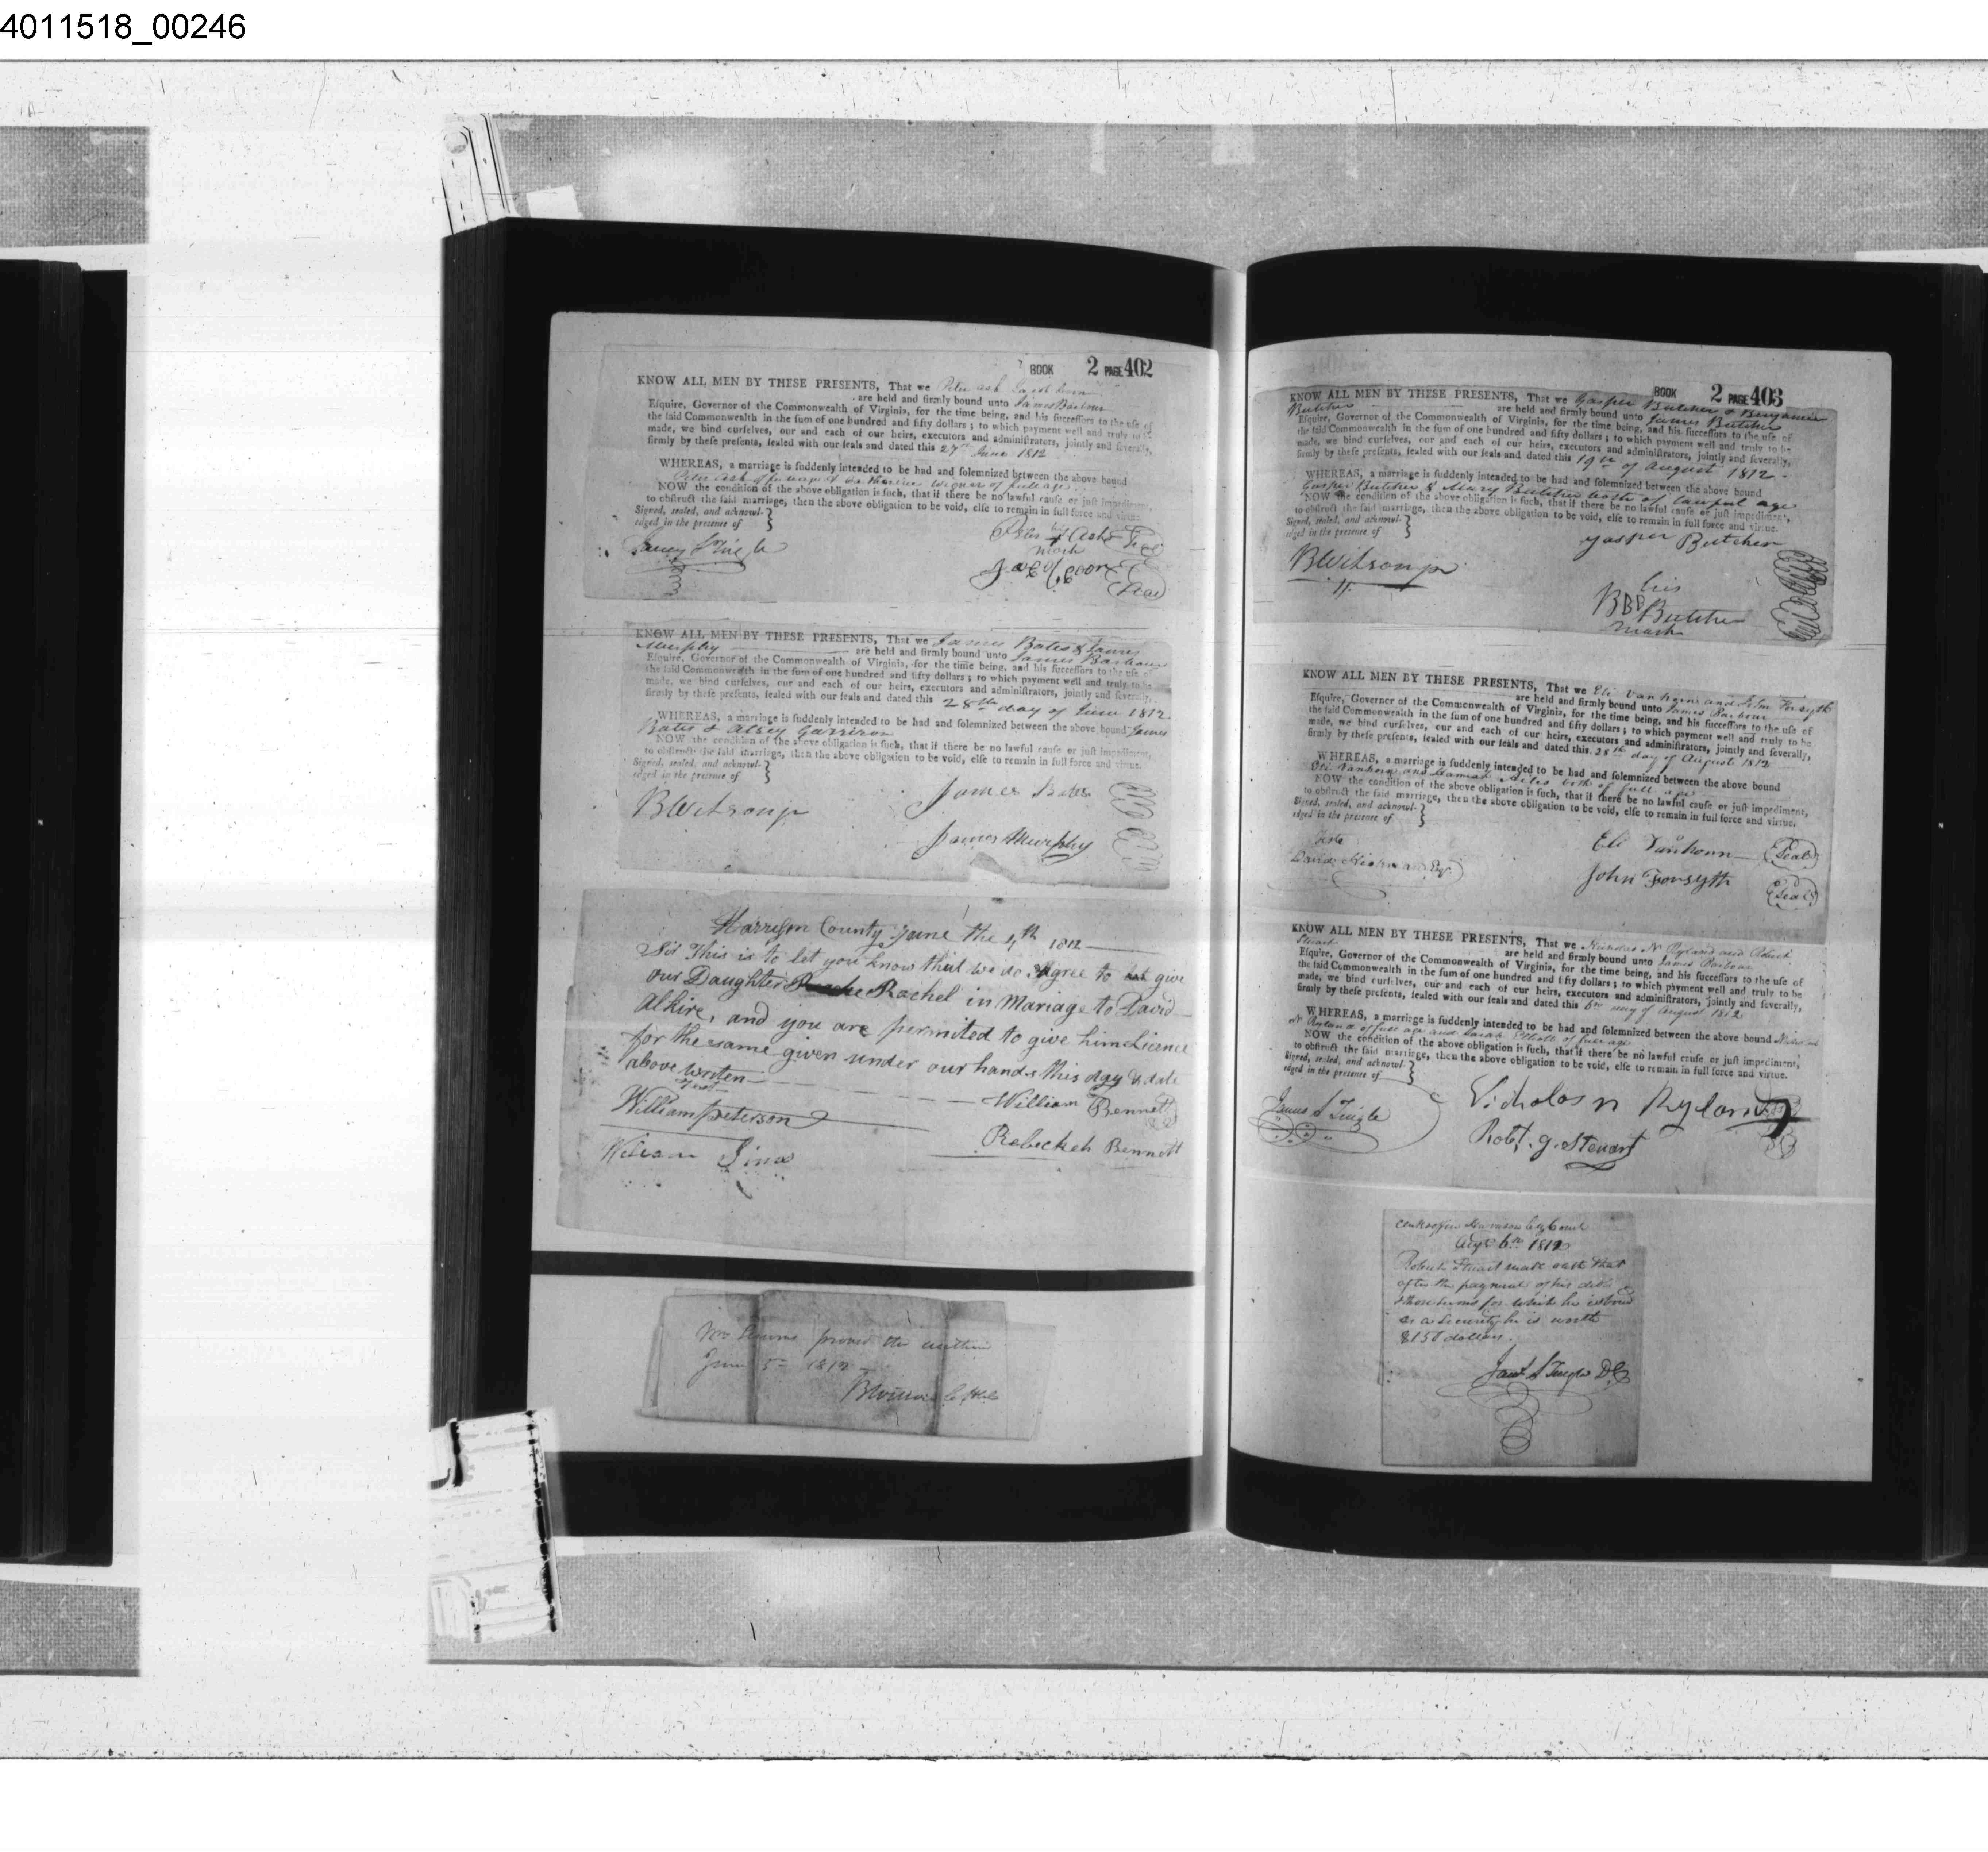 4011518_00246
BOOK 2 PAGE 402
KNOW ALL MEN BY THESE PRESENTS, That we Peter Ash Jacob Coon
are held and firmly bound unto James Barbour
Esquire, Governor of the Commonwealth of Virginia, for the time being, and his successors to the use of
the said Commonwealth in the sum of one hundred and fifty dollars ; to which payment well and truly to be
made, we bind ourselves, our and each of our heirs, executors and administrators, jointly and severally,
firmly by these presents, sealed with our seals and dated this 27th June 1812
WHEREAS, a marriage is suddenly intended to be had and solemnized between the above bound
Peter Ash of full age & Catharine of full age
NOW the condition of the above obligation is such, that if there be no lawful cause or just impediment,
to obstruct the said marriage, then the above obligation to be void, else to remain in full force and virtue.
Signed, sealed, and acknowl-
edged in the presence of
Peter Ash
mark
Jacob Coon
KNOW ALL MEN BY THESE PRESENTS, That we James Bates & James
Murphy are held and firmly bound unto James Barbour
Esquire, Governor of the Commonwealth of Virginia, for the time being, and his successors to the use of
the said Commonwealth in the sum of one hundred and fifty dollars ; to which payment well and truly to be
made, we bind ourselves, our and each of our heirs, executors and administrators, jointly and severally,
firmly by these presents, sealed with our seals and dated this 28th day of June 1812
WHEREAS, a marriage is suddenly intended to be had and solemnized between the above bound James
Bates & Alsey Garrison
NOW the condition of the above obligation is such, that if there be no lawful cause or just impediment,
to obstruct the said marriage, then the above obligation to be void, else to remain in full force and virtue.
Signed, sealed, and acknowl-
edged in the presence of
BWilson jr
James Bates
James Murphy
Harrison County June the 4th 1812
Sir This is to let you know that we do Agree to give
our Daughter Rachel in Mariage to David
Alkire, and you are permited to give him Licence
for the same given under our hands this day & date
above writen
William Peterson
William Bennett
Rebeckeh Bennett
proved the within
June 5th 1812
BOOK 2 PAGE 403
KNOW ALL MEN BY THESE PRESENTS, That we Gasper Butcher & Benjamin
Butcher are held and firmly bound unto James Butcher
Esquire, Governor of the Commonwealth of Virginia, for the time being, and his successors to the use of
the said Commonwealth in the sum of one hundred and fifty dollars ; to which payment well and truly to be
made, we bind ourselves, our and each of our heirs, executors and administrators, jointly and severally,
firmly by these presents, sealed with our seals and dated this 19th of August 1812.
WHEREAS, a marriage is suddenly intended to be had and solemnized between the above bound
Gasper Butcher & Mary Butcher both of lawful age
NOW the condition of the above obligation is such, that if there be no lawful cause or just impediment,
to obstruct the said marriage, then the above obligation to be void, else to remain in full force and virtue.
Signed, sealed, and acknowl-
edged in the presence of
BWilson jr
Gasper Butcher
his
Butcher
mark
KNOW ALL MEN BY THESE PRESENTS, That we Eli Vanhorn and John Forsyth
are held and firmly bound unto James Barbour
Esquire, Governor of the Commonwealth of Virginia, for the time being, and his successors to the use of
the said Commonwealth in the sum of one hundred and fifty dollars ; to which payment well and truly to be
made, we bind ourselves, our and each of our heirs, executors and administrators, jointly and severally,
firmly by these presents, sealed with our seals and dated this 28th day of August 1812
WHEREAS, a marriage is suddenly intended to be had and solemnized between the above bound
Eli Vanhorn and both of full age
NOW the condition of the above obligation is such, that if there be no lawful cause or just impediment,
to obstruct the said marriage, then the above obligation to be void, else to remain in full force and virtue.
Signed, sealed, and acknowl-
edged in the presence of
Teste
Eli Vanhorn Seal
John Forsyth Seal
KNOW ALL MEN BY THESE PRESENTS, That we Nicholas N Ryland and Robert
Stuart are held and firmly bound unto James Barbour
Esquire, Governor of the Commonwealth of Virginia, for the time being, and his successors to the use of
the said Commonwealth in the sum of one hundred and fifty dollars ; to which payment well and truly to be
made, we bind ourselves, our and each of our heirs, executors and administrators, jointly and severally,
firmly by these presents, sealed with our seals and dated this 6th day of August 1812
WHEREAS, a marriage is suddenly intended to be had and solemnized between the above bound Nicholas
N Ryland of full age and Sarah of full age
NOW the condition of the above obligation is such, that if there be no lawful cause or just impediment,
to obstruct the said marriage, then the above obligation to be void, else to remain in full force and virtue.
Signed, sealed, and acknowl-
edged in the presence of
Nicholas N Ryland
Robt. G. Steuart
Harrison Cty Court
Augt 6th 1812
Robert Stuart made oath that
after the payment of his debts
& those sums for which he is bound
as a security he is worth
$150 dollars.